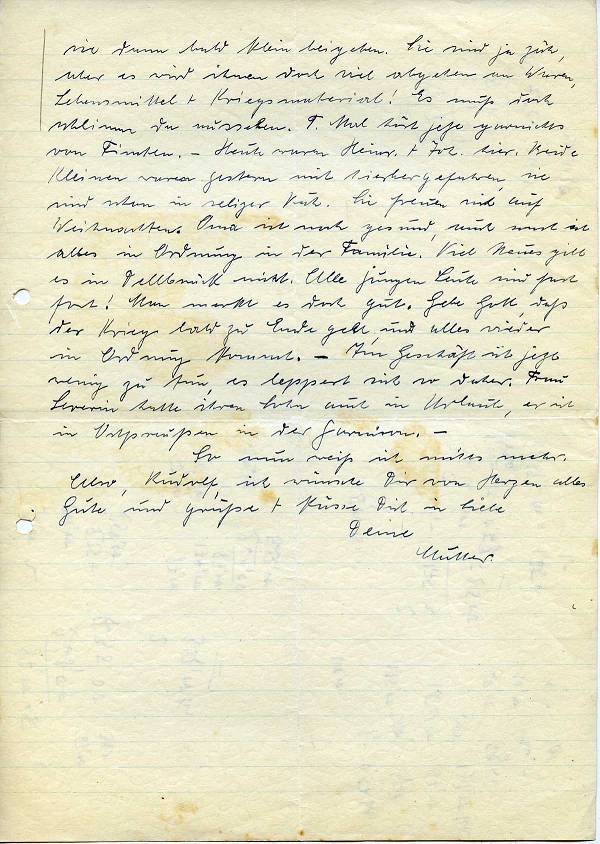 sie dann bald klein beigeben. Sie sind ja zäh,
aber es wird ihnen doch viel abgehen an Waren,
Lebensmittel + Kriegsmaterial! Es muß doch
schlimm da aussehen. T. Mal hört jetzt garnichts
von Finnten. – Heute waren Heinr. + Jos. hier. Beide
Kleinen waren gestern mit hierhergefahren, sie
sind schon in seliger Lust. Sie freuen sich auf
Weihnachten. Oma ist noch gesund, und sonst ist
alles in Ordnung in der Familie. Viel Neues gibt
es in Dellbrück nicht. Alle jungen Leute sind fast
fort! Man merkt es doch gut. Gebe Gott, daß
der Krieg bald zu Ende geht, und alles wieder
in Ordnung kommt. – Im Geschäft ist jetzt
wenig zu tun, es leppert sich so daher. Frau
Severin hatte ihren Sohn auch in Urlaub, er ist
in Ostpreußen in der Garnison. –
So nun weiß ich nichts mehr.
Also, Rudolf, ich wünsche Dir von Herzen alles
Gute und Grüße + Küsse Dich in Liebe
Deine
Mutter.